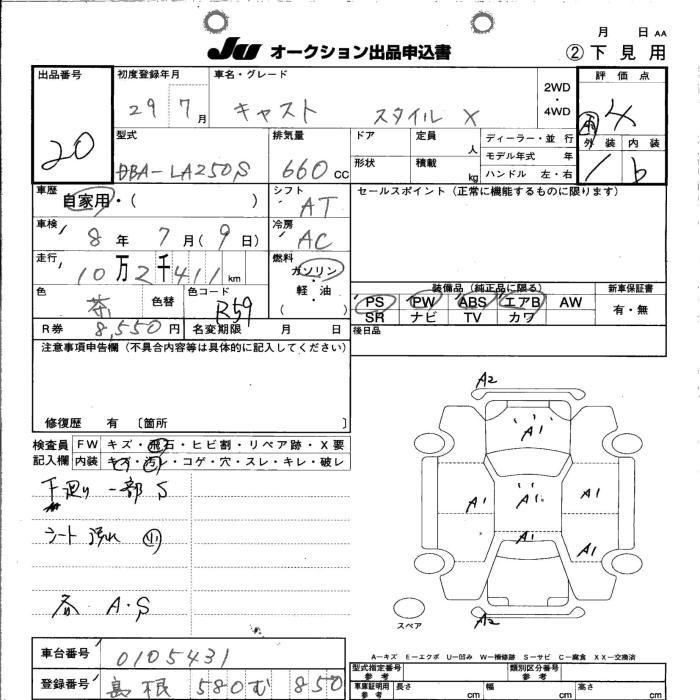 月 日 AA
JU オークション出品申込書
② 下見用
出品番号
20
初度登録年月
29 7 月
車名・グレード
キャスト スタイル X
2WD ・ 4WD
評価点
4
外装 内装
1 b
型式
DBA-LA250S
排気量
660 CC
ドア
定員 人
形状
積載 kg
ディーラー・並行
モデル年式 年
ハンドル 左・右
車歴
自家用・( )
シフト
AT
セールスポイント (正常に機能するものに限ります)
車検
8 年 7 月 ( 9 日)
冷房
AC
走行
10 万 2 千 411 km
燃料
ガソリン
・
軽・油
・
( )
色
茶
色替
色コード
R59
R券 8,550 円
名変期限 月 日
装備品 (純正品に限る)
PS PW ABS エアB AW
SR ナビ TV カワ
新車保証書
有・無
後日品
注意事項申告欄 (不具合内容等は具体的に記入してください)
修復歴 有 [箇所 ]
検査員記入欄
FW キズ・飛石・ヒビ割・リペア跡・X要
内装 キズ・汚れ・コゲ・穴・スレ・キレ・破レ
下廻り 一部 S
シート 汚れ 小
各 A・S
A2
A1
A1 A1 A1
A1 A1
A2
スペア
A−キズ E−エクボ U−凹み W−補修跡 S−サビ C−腐食 XX−交換済
車台番号 0105431
登録番号 島根 580 む 850
型式指定番号 参考
類別区分番号 参考
車庫証明用 参考
長さ cm 幅 cm 高さ cm